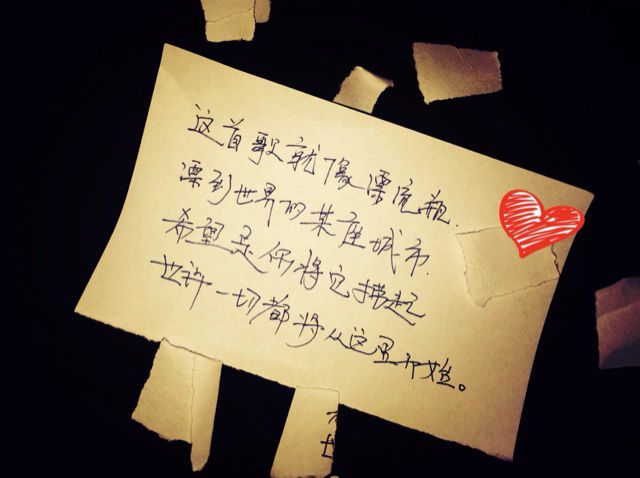 这首歌就像漂流瓶.
漂到世界的某座城市.
希望是你将它捞起
也许一切都将从这里开始。